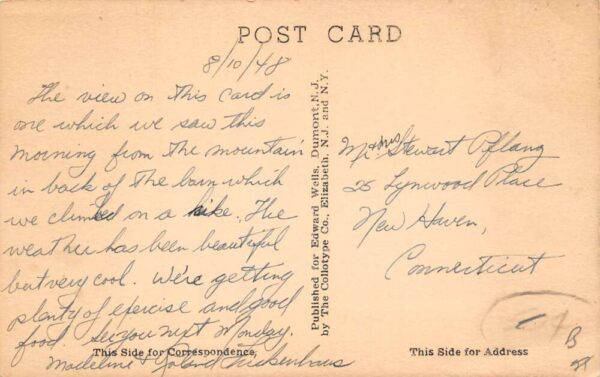 POST CARD
8/10/48
The view on this card is
one which we saw this
morning from the mountain
in back of the barn which
we climbed on a hike. The
weather has been beautiful
but very cool. We're getting
plenty of exercise and good
food. See you next Monday.
Madeline & Roland Fickenhaus
This Side for Correspondence
Published for Edward Wells, Dumont, N.J.
by The Collotype Co., Elizabeth, N.J. and N.Y.
Mr & Mrs Stewart Pflang
25 Lynwood Place
New Haven,
Connecticut
This Side for Address
B